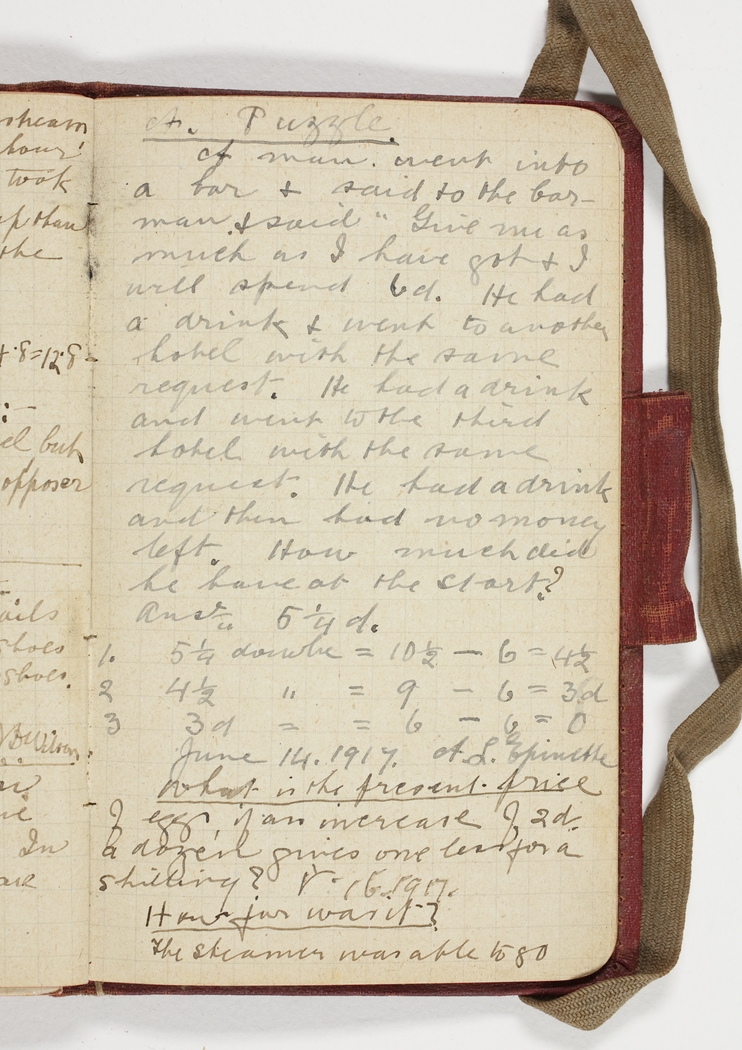 steam
hour
took
than
the
4.8=12.8
but
opposer
shoes
shoes.
In
A. Puzzle.
A man. went into
a bar & said to the bar-
man & said " Give me as
much as I have got & I
will spend 6d. He had
a drink & went to another
hotel with the same
request. He had a drink
and went to the third
hotel with the same
request. He had a drink
and then had no money
left. How much did
he have at the start?
Ansr 5¼d.
1. 5¼ double = 10½ - 6 = 4½
2 4½ " = 9 - 6 = 3d
3 3d = = 6 - 6 = 0
June 14. 1917. A. L.
What is the present price
of eggs if an increase of 2d.
a dozen gives one less for a
shilling? 1917.
How far was it?
The steamer was able to go